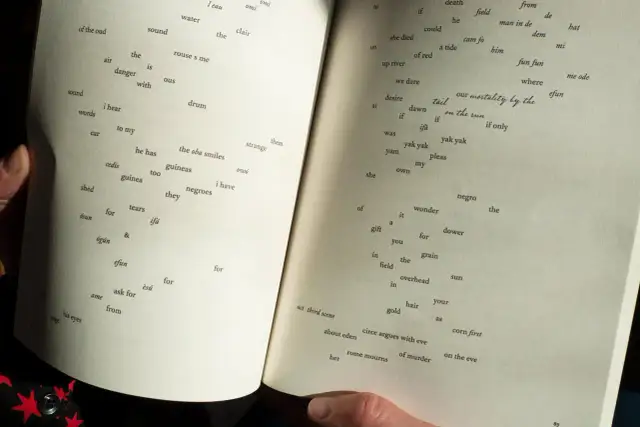 water
of the oud sound the clair
air the rouse s me
danger is
with ous
sound
words i hear drum
ear to my
he has the oba smiles strange then
omi
too guineas
guinea negroes i have
shed they
for tears
ifá
&
ògún
efun
for
for
ask for èsù
from
his eyes
death from
if field de
he man in de hat
could dem
she died cum fo mi
on a tide him
of red fun fun
up river me ode
we dare where
our mortality by the efun
desire tail
dawn on the sun
if if
ifá if only
was yak yak yak yak
yam pleas
my
she own
negro the
of wonder
a it
gift dower
you for
in grain
the
field sun
overhead
in
your
hair
gold as
act third scene corn first
about eden circe argues with eve
her some mourns of murder on the eve